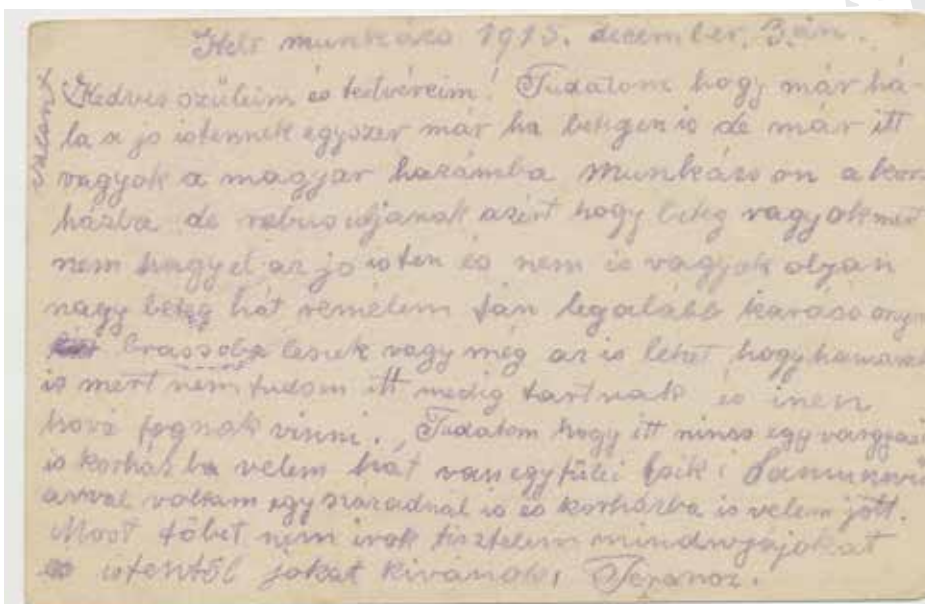 Kelt munkács 1915. december. 3.án.
Kedves szüleim és testvéreim! Tudatom hogy már há-
la a jo istennek egyszer már ha betegen is de már itt
vagyok a magyar hazámba munkács on a kor
házba de ne busuljanak azért hogy beteg vagyok mert
nem hagy el az jo isten és nem is vagyok olyan
nagy beteg hát remélem tán legalább karácsonyra
brassoba leszek vagy még az is lehet hogy hamarab
is mert nem tudom itt medig tartnak és inen
hová fognak vinni. Tudatom hogy itt nincs egy vargyasi
is korházba velem hát van egy fülei Csiki
avval voltam egy századnál is és korházba is velem jött.
Most töbet nem irok tisztelem mindnyájokat
istentől jokat kivánok,